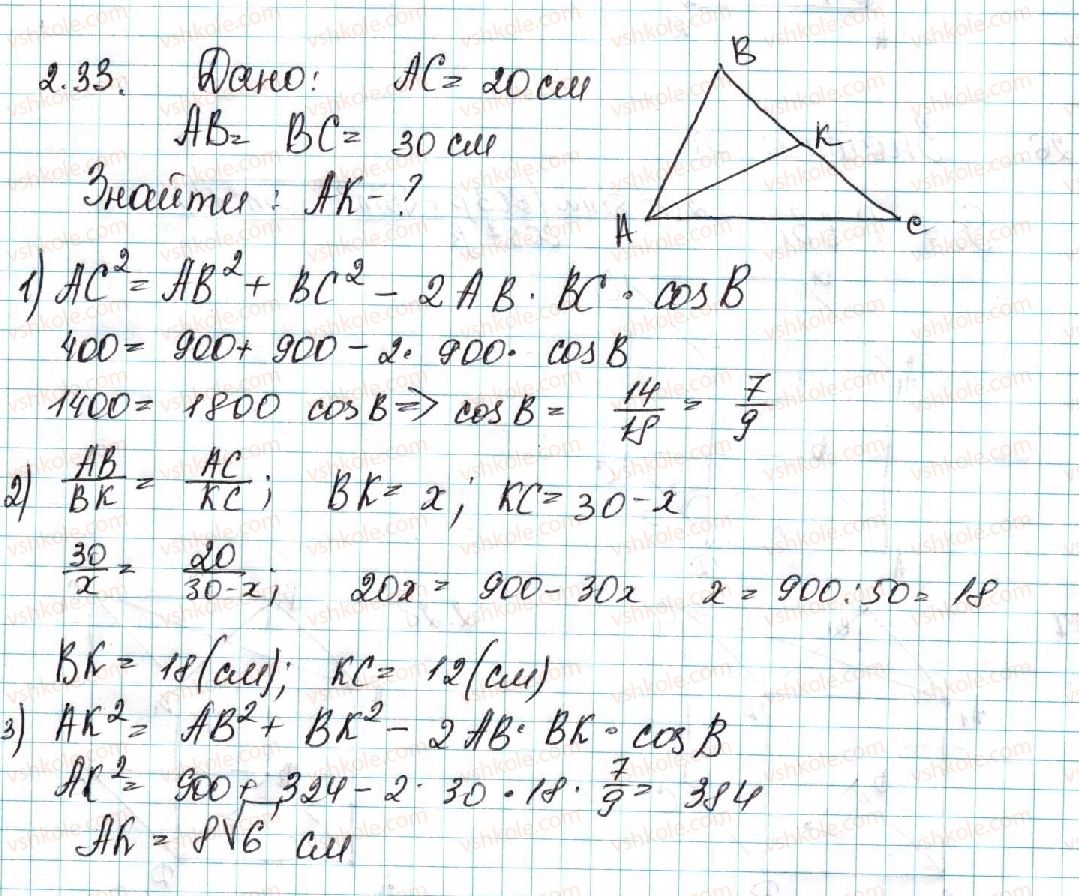 2.33. Дано: AC = 20 см
AB = BC = 30 см
Знайти: AK - ?
B
K
A
C
1) AC² = AB² + BC² - 2AB · BC · cos B
400 = 900 + 900 - 2 · 900 · cos B
1400 = 1800 cos B => cos B = 14/18 = 7/9
2) AB/BK = AC/KC; BK = x; KC = 30 - x
30/x = 20/30-x; 20x = 900 - 30x x = 900 : 50 = 18
BK = 18 (см); KC = 12 (см)
3) AK² = AB² + BK² - 2AB · BK · cos B
AK² = 900 + 324 - 2 · 30 · 18 · 7/9 = 384
AK = 8√6 см
vshkole.com